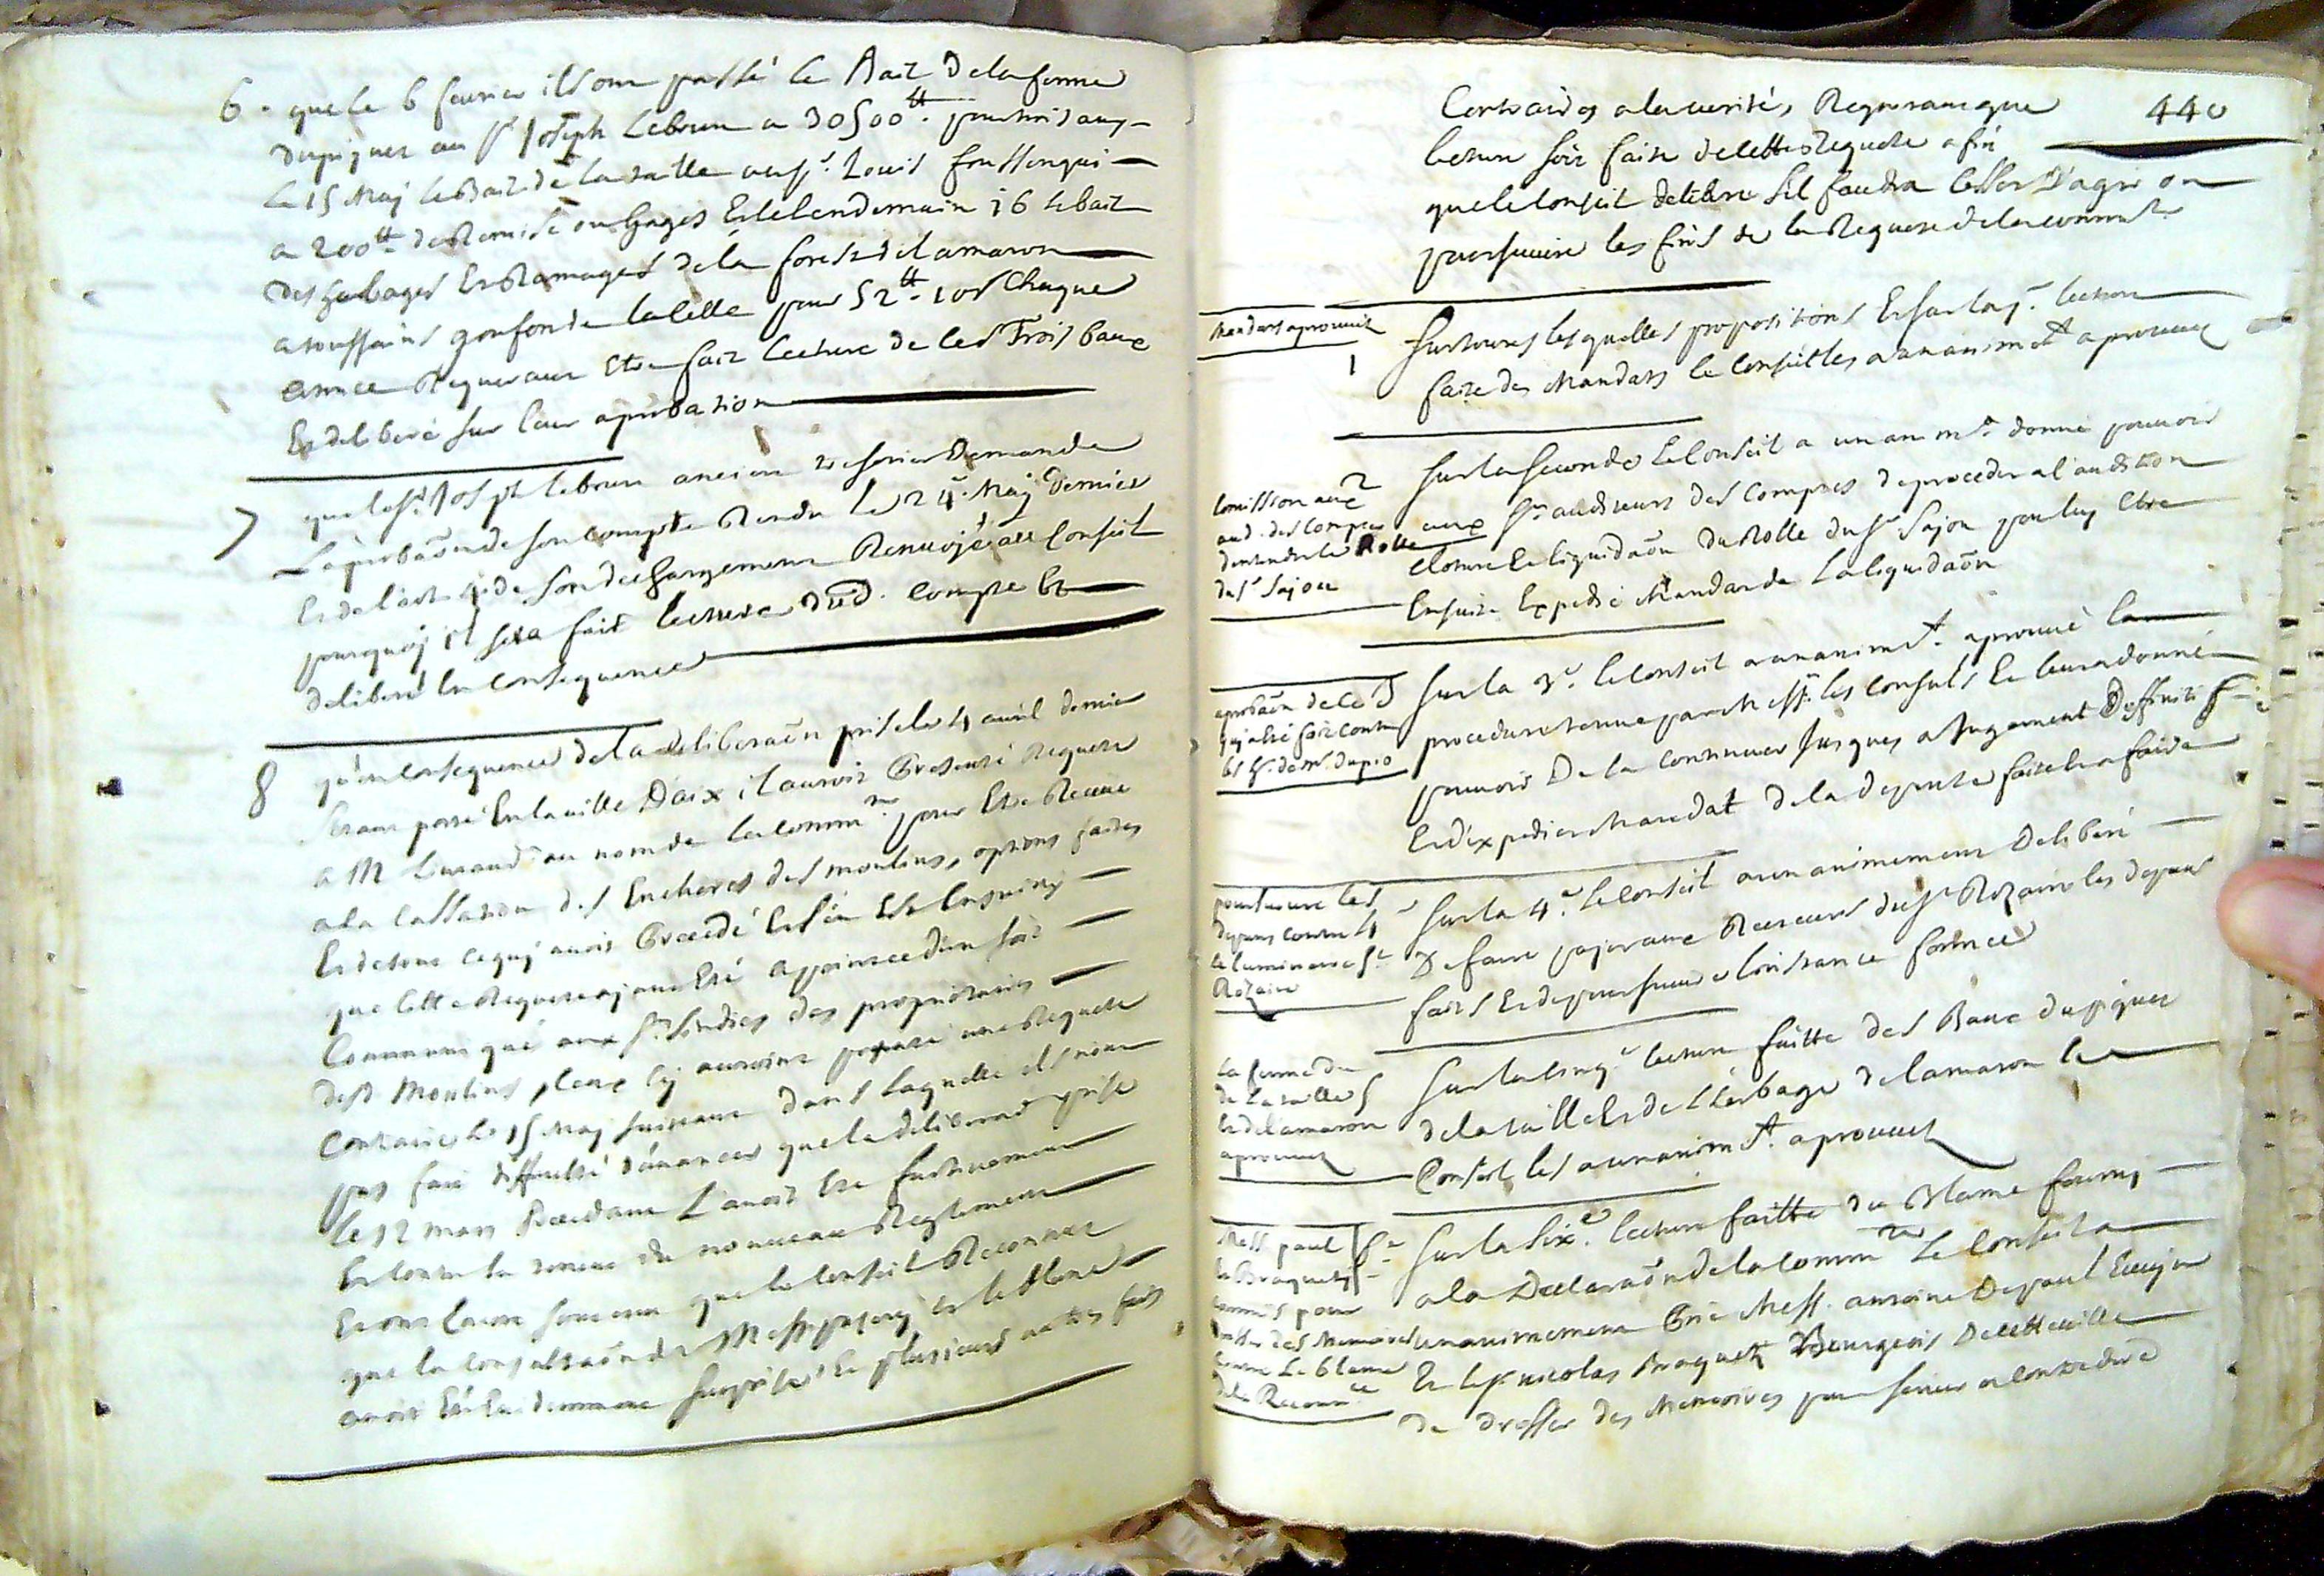 6. que le 6 fevrier ils ont passé le Bail de la ferme
du piquet au sr Joseph Lebrun a 30500tt. pour trois ans
Le 15 Maj le Bail de la taille au sr. Louis foussenqui
a 200tt de Remise ou gages Et le lendemain 16 le bail
des herbages Et Ramages de la forest de lamaron
a toussains gonfond de la celle pour 52tt. 10s Chaque
année Requerant Etre fait lecture de ces Trois baux
Et deliberé sur leur aprobation
7 que le sr. Joseph lebrun ancien tresorier Demande
L'aprobaôn de son compte Rendu le 24. Maj dernier
Et de l'art. 4 de son dechargement Renvojé au Conseil
pourquoj il sera fait lecture dud. compte Et
deliberé En consequence
8 qu'en consequence de la deliberaôn prise le 4 avril dernier
s'etant porté En la ville D'aix il auroit Presenté Requete
a Mr au nom de la commté pour Etre Recue
a la cassation des Encheres des moulins, options faites
Et de tout ce quj avoit Precedé
que cette Requete ajant Eté appointée d'un soit
Communiqué aux srs. sindics des proprietaires
desd. Moulins, ceux cy auroint une Requete
Contraire le 15 Maj suivant dans laquelle ils n'ont
pas fait difficulté d'avancer que la deliberaôn prise
le 12 mars Precedant L'avoit Eté furtivement
Et contre la teneur du nouveau Reglement
Et ont Encore soutenu que le conseil Reconnut
que la consultaôn de Mess. et le blanc
avoit Eté Evidemment surprise Et plusieurs autres faits
440
Contraires a la verité, Requerant que
lecture soit faite de cette Requete afin
que le Conseil delibere s'il faudra cesser D'agir ou
poursuivre les fins de la Requete de la commté.
Mandats aprouvés
1 sur toutes lesquelles propositions Et sur la pre. lecture
faite des Mandats le Conseil les a unanimt aprouvés
Comission aux
aud. des Comptes
d'entendre le Rolle
du sr Sajou
2 sur la seconde Le Conseil a unanimt. donné pouvoir
aux srs auditeurs des comptes de proceder a l'audition
cloture Et liquidaôn du Rolle du sr Sajou pour luy Etre
Ensuite Expedié Mandat de La liquidaôn
aprobaôn de ce
quj a Eté fait contre
les de mr. dupio
3 sur la 3e. le Conseil a unanimt. aprouvé la
procedure tenue par Mess. les Consuls Et leur a donné
pouvoir De la continuer Jusques a Jugement Deffinitif
Et d'expedier Mandat de la depense faite Et a faire
poursuivre les
depens contre
le luminaire st
Rozaire
4 sur la 4e. le Conseil a unanimement Deliberé
De faire pajer aux Recteurs du st Rozaire les depens
faits Et de poursuivre L'instance formée
La ferme du
de la taille
Et de lamaron
aprouvés
5 sur la cinqe lecture faitte des Baux du piquet
de la taille Et de L'herbage de lamaron le
Conseil les a unanimt. aprouvés
Mess. paul
Et Braquety
commis pour
dresser des Memoires
contre Le blame
de la Reconn.ce
6e sur la sixe. lecture faitte du Blame fourny
a la Declaraôn de la commté Le Conseil a
unanimement Prié Mess. antoine De paul Ecuyer
Et le sr nicolas Braquety Bourgeois De cette ville
De dresser des Memoires pour servir a contredire